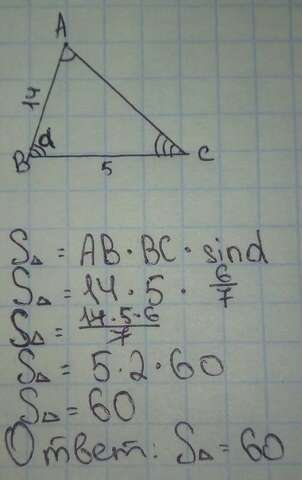 A
14
α
B
5
C
S△ = AB · BC · sinα
S△ = 14 · 5 · 6/7
S△ = 14·5·6/7
S△ = 5·2·60
S△ = 60
Ответ: S△ = 60